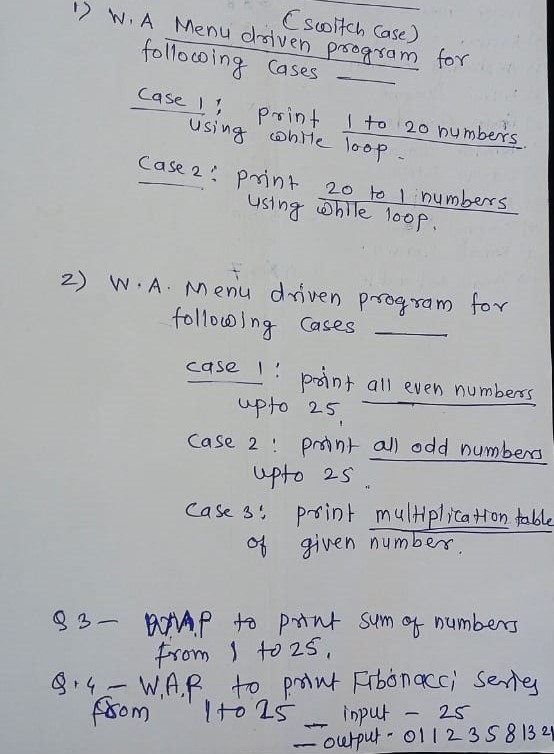 (switch case)
1) W.A Menu driven program for
following cases
Case 1: print 1 to 20 numbers
using while loop.
Case 2: print 20 to 1 numbers
using while loop.
2) W.A. Menu driven program for
following cases
case 1: print all even numbers
upto 25.
Case 2: print all odd numbers
upto 25.
Case 3: print multiplication table
of given number.
Q3- WAP to print sum of numbers
from 1 to 25.
Q.4- W.A.P. to print Fibonacci series
from 1 to 25 - input - 25
- output - 0 1 1 2 3 5 8 13 21